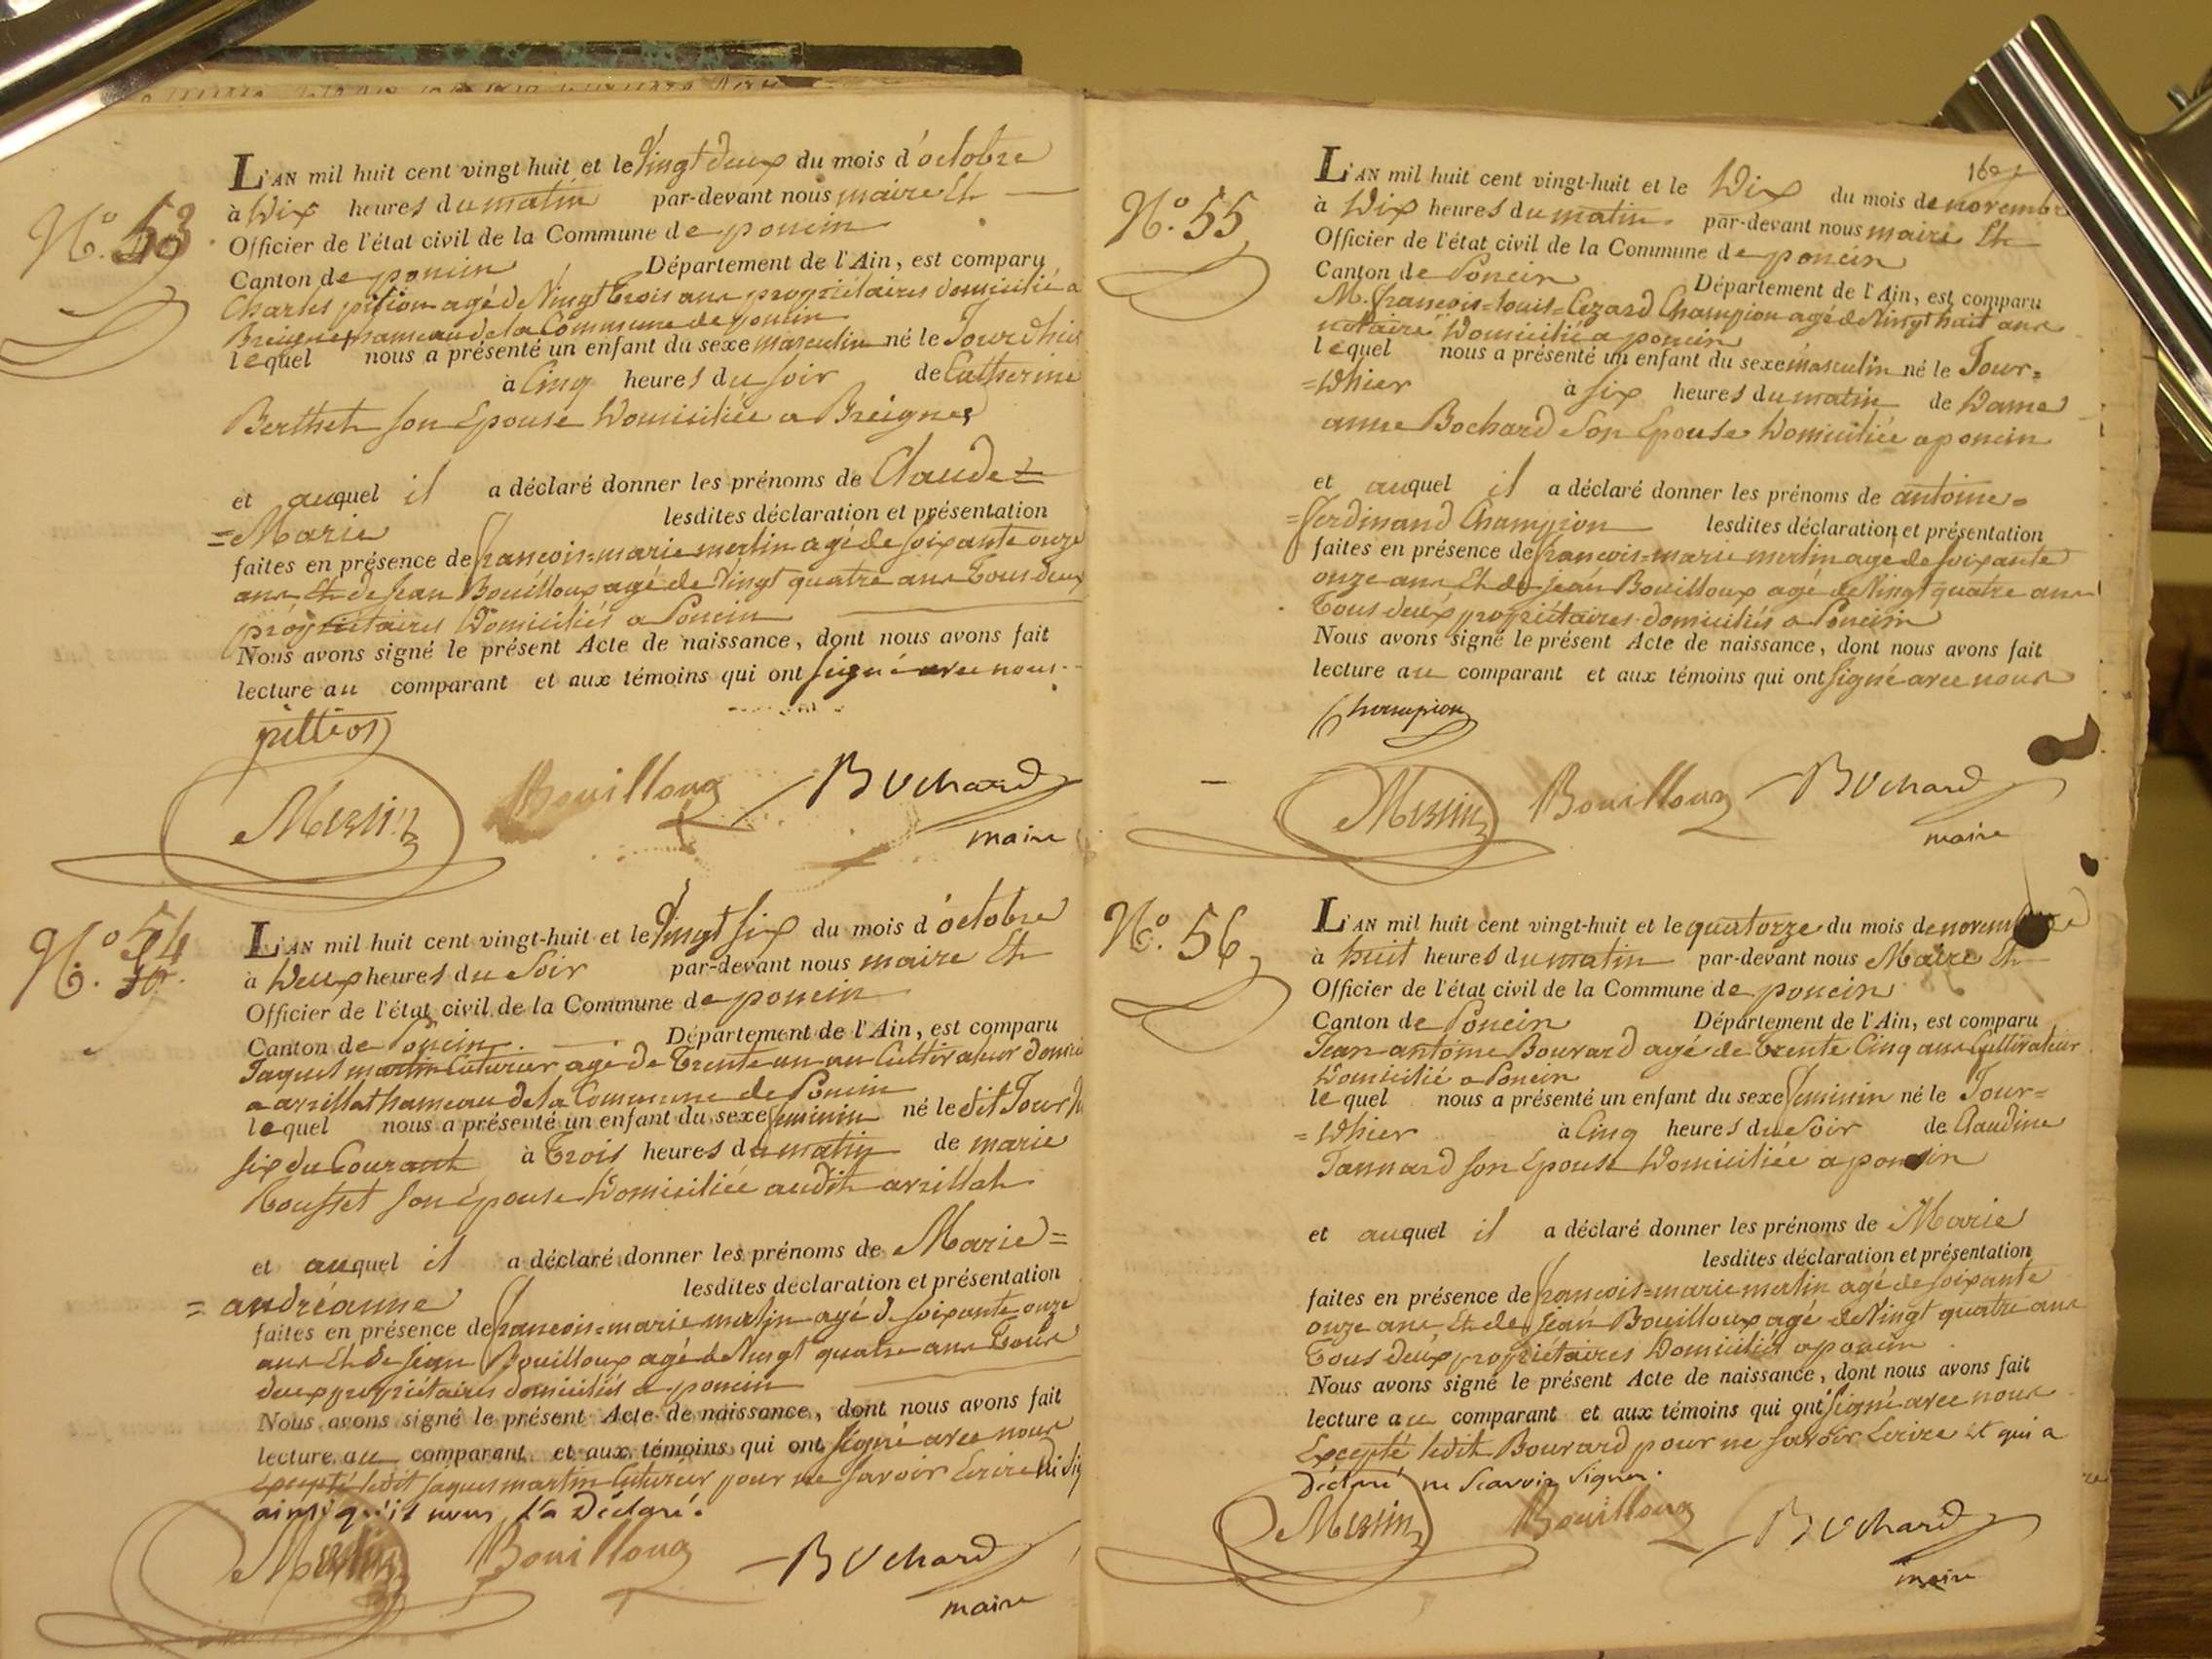 N.o 53
L'AN mil huit cent vingt-huit et le Vingt deux du mois d'octobre
à Dix heures du matin par-devant nous maire Et
Officier de l'état civil de la Commune de poncin
Canton de poncin Département de l'Ain, est comparu
Charles pition agé de Vingt trois ans propriétaires domicilié a
hameau de la Commune de poncin
lequel nous a présenté un enfant du sexe masculin né le Jourdhui
à Cinq heures du soir de Catherine
Berthet son Epouse Domiciliée a Breignes
et auquel il a déclaré donner les prénoms de Claude =
= Marie lesdites déclaration et présentation
faites en présence de francois=marie merlin agé de soixante onze
ans Et de Jean Bouilloux agé de Vingt quatre ans tous deux
propriétaires Domiciliés a Poncin
Nous avons signé le présent Acte de naissance, dont nous avons fait
lecture au comparant et aux témoins qui ont signé avec nous.
pittion
Merlin Bouilloux Bochard
maire
N.o 54
L'AN mil huit cent vingt-huit et le Vingt six du mois d'octobre
à Deux heures du Soir par-devant nous maire Et
Officier de l'état civil de la Commune de poncin
Canton de Poncin Département de l'Ain, est comparu
Jaques martin Cuturier agé de trente un an Cultivateur
a arzillat hameau de la Commune de Poncin
lequel nous a présenté un enfant du sexe feminin né le dit Jour
six du Courant à trois heures du matin de marie
Rousset son Epouse Domiciliée audit arzillat
et auquel il a déclaré donner les prénoms de Marie =
= andréanne lesdites déclaration et présentation
faites en présence de francois=marie merlin agé de soixante onze
ans Et de Jean Bouilloux agé de Vingt quatre ans tous
deux propriétaires domiciliés a poncin
Nous avons signé le présent Acte de naissance, dont nous avons fait
lecture au comparant et aux témoins qui ont signé avec nous
Excepté ledit Jaques martin Cuturier pour ne savoir Ecrire
ainsi qu'il nous l'a Déclaré.
Merlin Bouilloux Bochard
maire
N.o 55
L'AN mil huit cent vingt-huit et le Dix du mois de novembre
à Dix heures du matin par-devant nous maire Et
Officier de l'état civil de la Commune de poncin
Canton de Poncin Département de l'Ain, est comparu
M. francois=louis=Cezard Champion agé de Vingt huit ans
notaire Domicilié a poncin
lequel nous a présenté un enfant du sexe masculin né le Jour=
=Dhier à six heures du matin de Dame
anne Bochard Son Epouse Domiciliée a poncin
et auquel il a déclaré donner les prénoms de antoine=
=ferdinand Champion lesdites déclaration et présentation
faites en présence de francois=marie merlin agé de soixante
onze ans Et de Jean Bouilloux agé de Vingt quatre ans
tous deux propriétaires domiciliés a Poncin
Nous avons signé le présent Acte de naissance, dont nous avons fait
lecture au comparant et aux témoins qui ont signé avec nous
Champion
Merlin Bouilloux Bochard
maire
N.o 56
L'AN mil huit cent vingt-huit et le quatorze du mois de novembre
à huit heures du matin par-devant nous Maire Et
Officier de l'état civil de la Commune de poncin
Canton de Poncin Département de l'Ain, est comparu
Jean=antoine Bouvard agé de trente Cinq ans Cultivateur
Domicilié a Poncin
lequel nous a présenté un enfant du sexe feminin né le Jour=
=Dhier à Cinq heures du Soir de Claudine
Jannard son Epouse Domiciliée a poncin
et auquel il a déclaré donner les prénoms de Marie
lesdites déclaration et présentation
faites en présence de francois=marie merlin agé de soixante
onze ans Et de Jean Bouilloux agé de Vingt quatre ans
tous deux propriétaires Domiciliés a poncin
Nous avons signé le présent Acte de naissance, dont nous avons fait
lecture au comparant et aux témoins qui ont signé avec nous
Excepté ledit Bouvard pour ne savoir Ecrire et qui a
déclaré ne Scavoir signer.
Merlin Bouilloux Bochard
maire